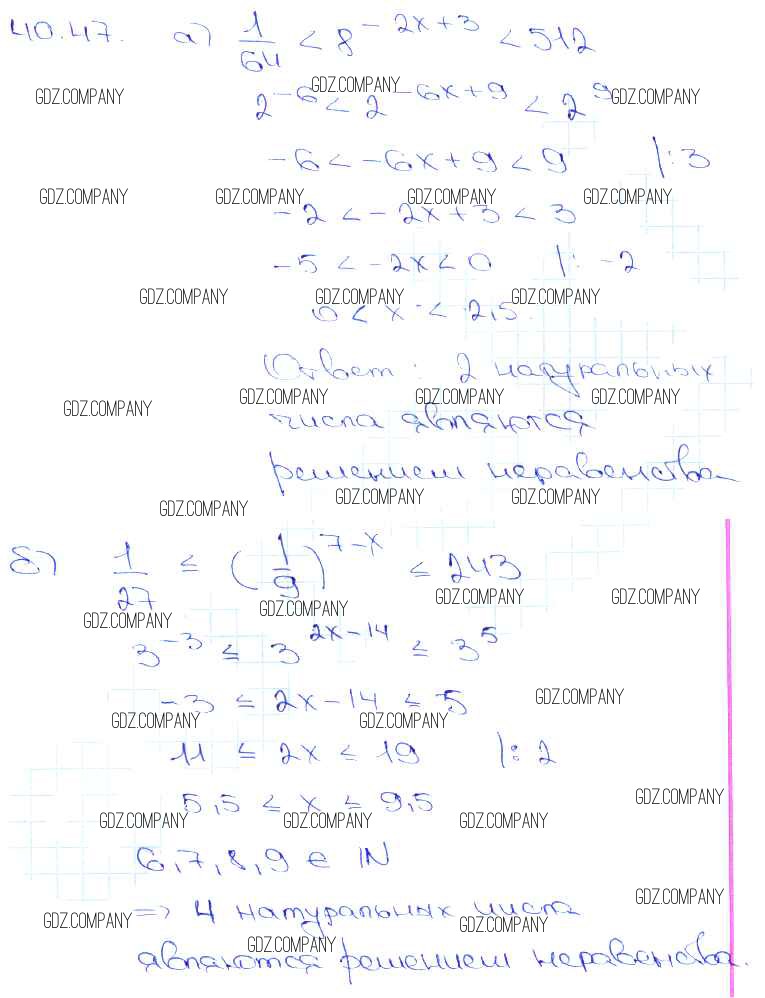 40.47. а) 1/64 < 8^(-2x+3) < 512
GDZ.COMPANY
2^(-6) < 2^(-6x+9) < 2^9
GDZ.COMPANY GDZ.COMPANY
-6 < -6x+9 < 9 |:3
GDZ.COMPANY GDZ.COMPANY GDZ.COMPANY GDZ.COMPANY
-2 < -2x+3 < 3
-5 < -2x < 0 |: -2
GDZ.COMPANY GDZ.COMPANY GDZ.COMPANY
0 < x < 2,5.
Ответ: 2 натуральных
GDZ.COMPANY GDZ.COMPANY GDZ.COMPANY GDZ.COMPANY
числа являются
решением неравенства
GDZ.COMPANY GDZ.COMPANY GDZ.COMPANY
б) 1/27 ≤ (1/9)^(7-x) ≤ 243
GDZ.COMPANY GDZ.COMPANY GDZ.COMPANY GDZ.COMPANY
3^(-3) ≤ 3^(2x-14) ≤ 3^5
-3 ≤ 2x-14 ≤ 5
GDZ.COMPANY GDZ.COMPANY GDZ.COMPANY
11 ≤ 2x ≤ 19 |:2
5,5 ≤ x ≤ 9,5
GDZ.COMPANY GDZ.COMPANY GDZ.COMPANY GDZ.COMPANY
6,7,8,9 ∈ N
=> 4 натуральных числа
GDZ.COMPANY GDZ.COMPANY GDZ.COMPANY
являются решением неравенства.
GDZ.COMPANY